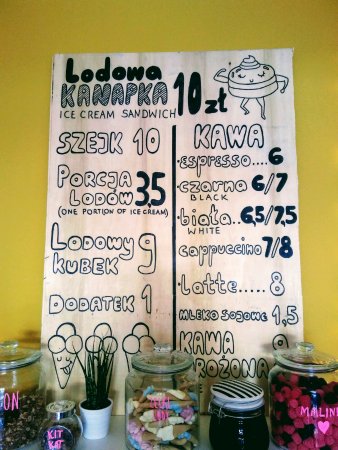 Lodowa
KANAPKA
ICE CREAM SANDWICH
10 zł
SZEJK 10
PORCJA
LODÓW 3,5
(ONE PORTION OF ICE CREAM)
LODOWY
KUBEK 9
DODATEK 1
KAWA
espresso.... 6
czarna 6/7
BLACK
biała.. 6,5/7,5
WHITE
cappuccino 7/8
Latte..... 8
MLEKO SOJOWE.. 1,5
KAWA
KIT
KAT
MALIN